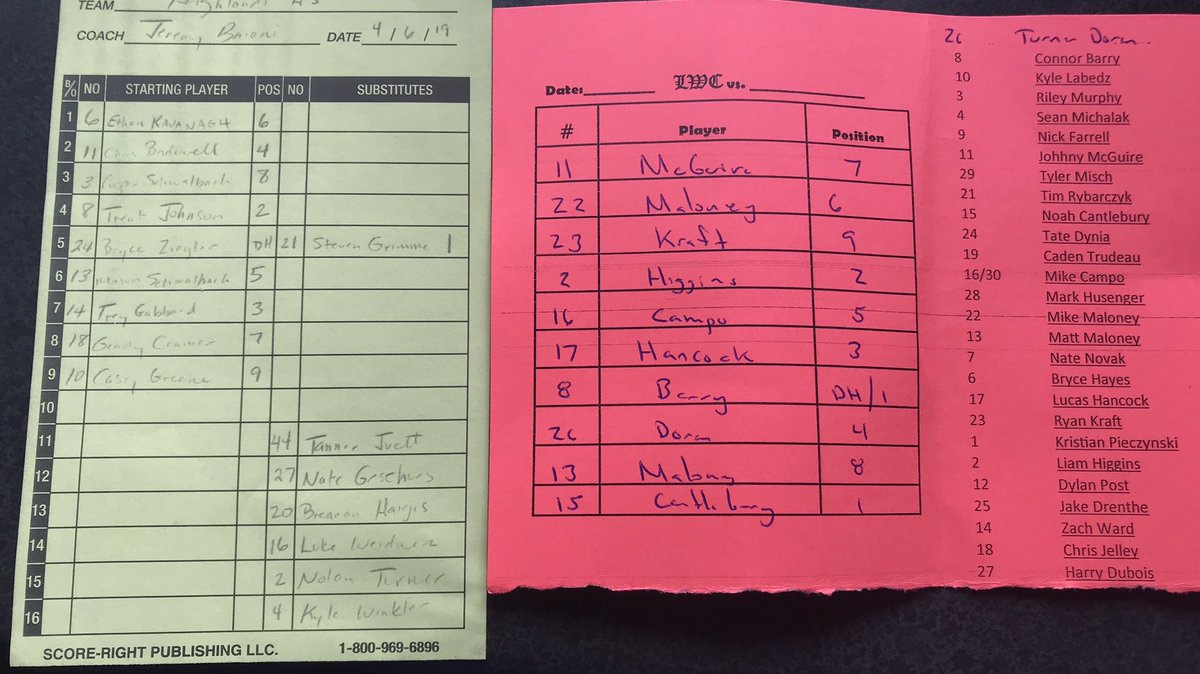 TEAM Highlands HS
COACH Jeremy Baioni DATE 4/6/19
B/O NO STARTING PLAYER POS NO SUBSTITUTES
1 6 Ethan KAVANAGH 6
2 11 4
3 3 Schwalbach 8
4 8 Trent Johnson 2
5 24 Bryce Ziegler DH 21 Steven Grimme 1
6 13 Schwalbach 5
7 14 Trey Gabbard 3
8 18 Grady Cramer 7
9 10 Casey Greene 9
10
11 44 Tanner
12 27 Nate
13 20 Brennan Hargis
14 16 Luke
15 2 Nolan Turner
16 4 Kyle Winkler
SCORE-RIGHT PUBLISHING LLC. 1-800-969-6896
Date: LWC vs.
# Player Position
11 McGuire 7
22 Maloney 6
23 Kraft 9
2 Higgins 2
16 Campo 5
17 Hancock 3
8 Barry DH/1
26 Doran 4
13 Maloney 8
15 Cantlebury 1
26 Turner Doran
8 Connor Barry
10 Kyle Labedz
3 Riley Murphy
4 Sean Michalak
9 Nick Farrell
11 Johhny McGuire
29 Tyler Misch
21 Tim Rybarczyk
15 Noah Cantlebury
24 Tate Dynia
19 Caden Trudeau
16/30 Mike Campo
28 Mark Husenger
22 Mike Maloney
13 Matt Maloney
7 Nate Novak
6 Bryce Hayes
17 Lucas Hancock
23 Ryan Kraft
1 Kristian Pieczynski
2 Liam Higgins
12 Dylan Post
25 Jake Drenthe
14 Zach Ward
18 Chris Jelley
27 Harry Dubois